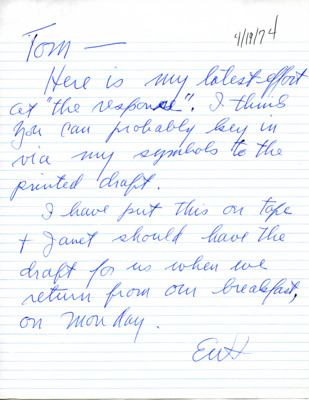 4/18/74
Tom —
Here is my latest effort
at "the response". I think
you can probably key in
via my symbols to the
printed draft.
I have put this on tape
+ Janet should have the
draft for us when we
return from our breakfast,
on Monday.
EWH